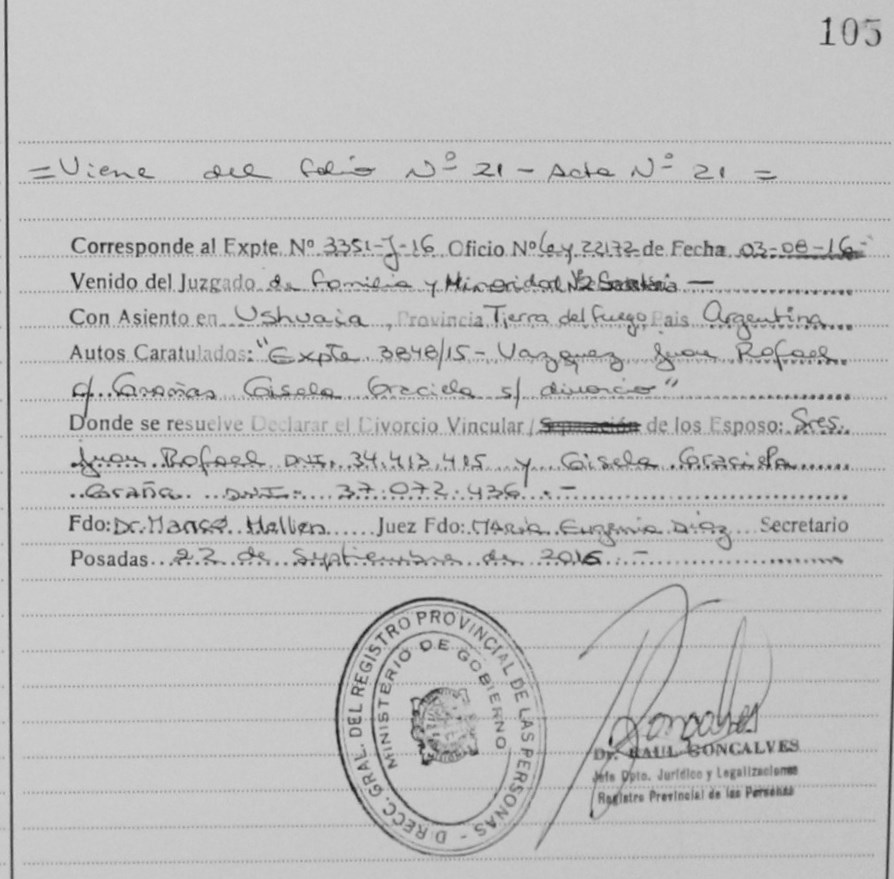 105
= Viene del folio Nº 21 - Acta Nº 21 =
Corresponde al Expte. Nº 3351-J-16 Oficio Nº 22172 de Fecha 03-08-16
Venido del Juzgado de Familia y Minoridad Nº2 —
Con Asiento en Ushuaia, Provincia Tierra del Fuego Pais Argentina
Autos Caratulados: "Expte 3848/15 - Vazquez Juan Rafael
c/ Gisela Graciela s/ divorcio"
Donde se resuelve Declarar el Divorcio Vincular / Separación de los Esposo: Sres.
Juan Rafael DNI. 34.413.415 y Gisela Graciela
DNI: 37.072.436 . -
Fdo: Dr. Juez Fdo: Maria Eugenia Diaz Secretario
Posadas 22 de Septiembre de 2016 -
D RECC. GRAL. DEL REGISTRO PROVINCIAL DE LAS PERSONAS -
MINISTERIO DE GOBIERNO
Dr. RAUL GONCALVES
Jefe Dpto. Jurídico y Legalizaciones
Registro Provincial de las Personas